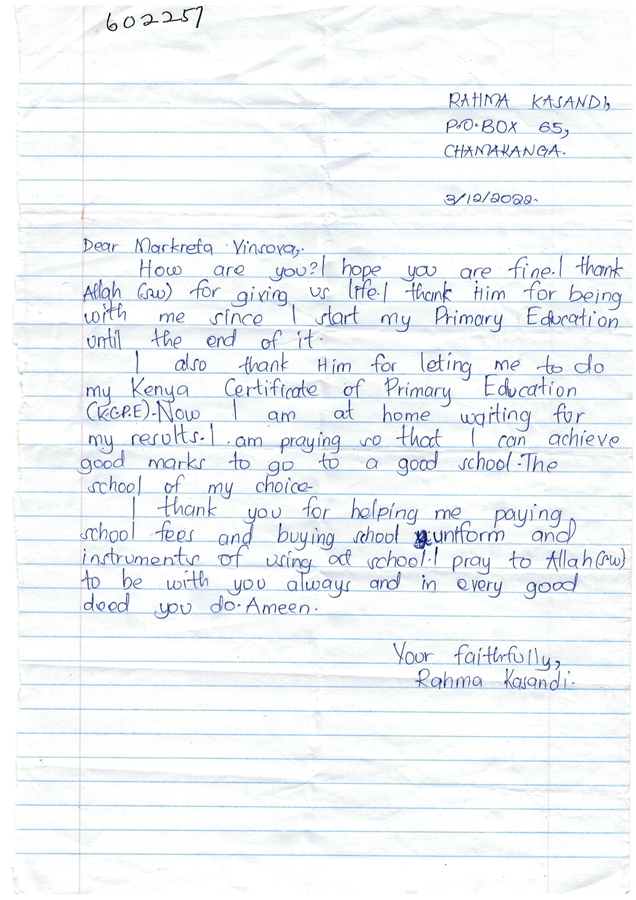 602257
RAHMA KASANDI,
P.O.BOX 65,
CHAMAKANGA.
3/12/2022.
Dear Markreta Vinsova,
How are you? I hope you are fine. I thank
Allah (sw) for giving us life. I thank Him for being
with me since I start my Primary Education
until the end of it.
I also thank Him for leting me to do
my Kenya Certificate of Primary Education
(K.C.P.E). Now I am at home waiting for
my results. I am praying so that I can achieve
good marks to go to a good school. The
school of my choice.
I thank you for helping me paying
school fees and buying school uniform and
instruments of using at school. I pray to Allah (sw)
to be with you always and in every good
deed you do. Ameen.
Your faithfully,
Rahma Kasandi.